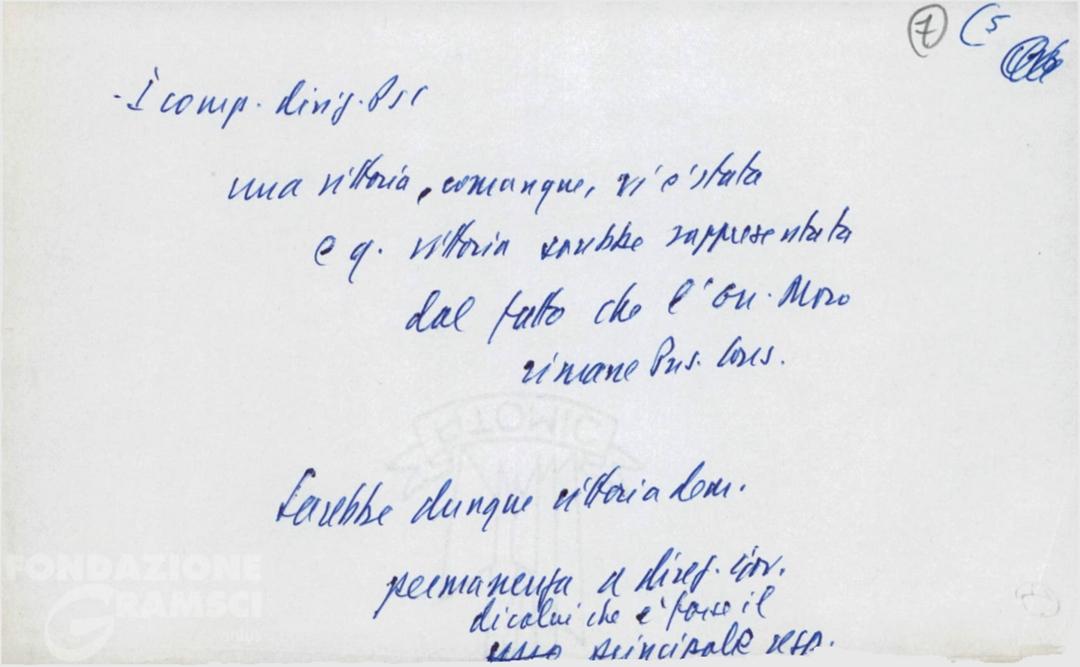 7 (5
- I comp. dirig. Psi
una vittoria, comunque, vi è stata
e q. vittoria sarebbe rappresentata
dal fatto che l'on. Moro
rimane Pres. Cons.
Sarebbe dunque vittoria dem.
permanenza a direz. Gov.
di colui che è forse il
principale resp.
FONDAZIONE
GRAMSCI
onlus